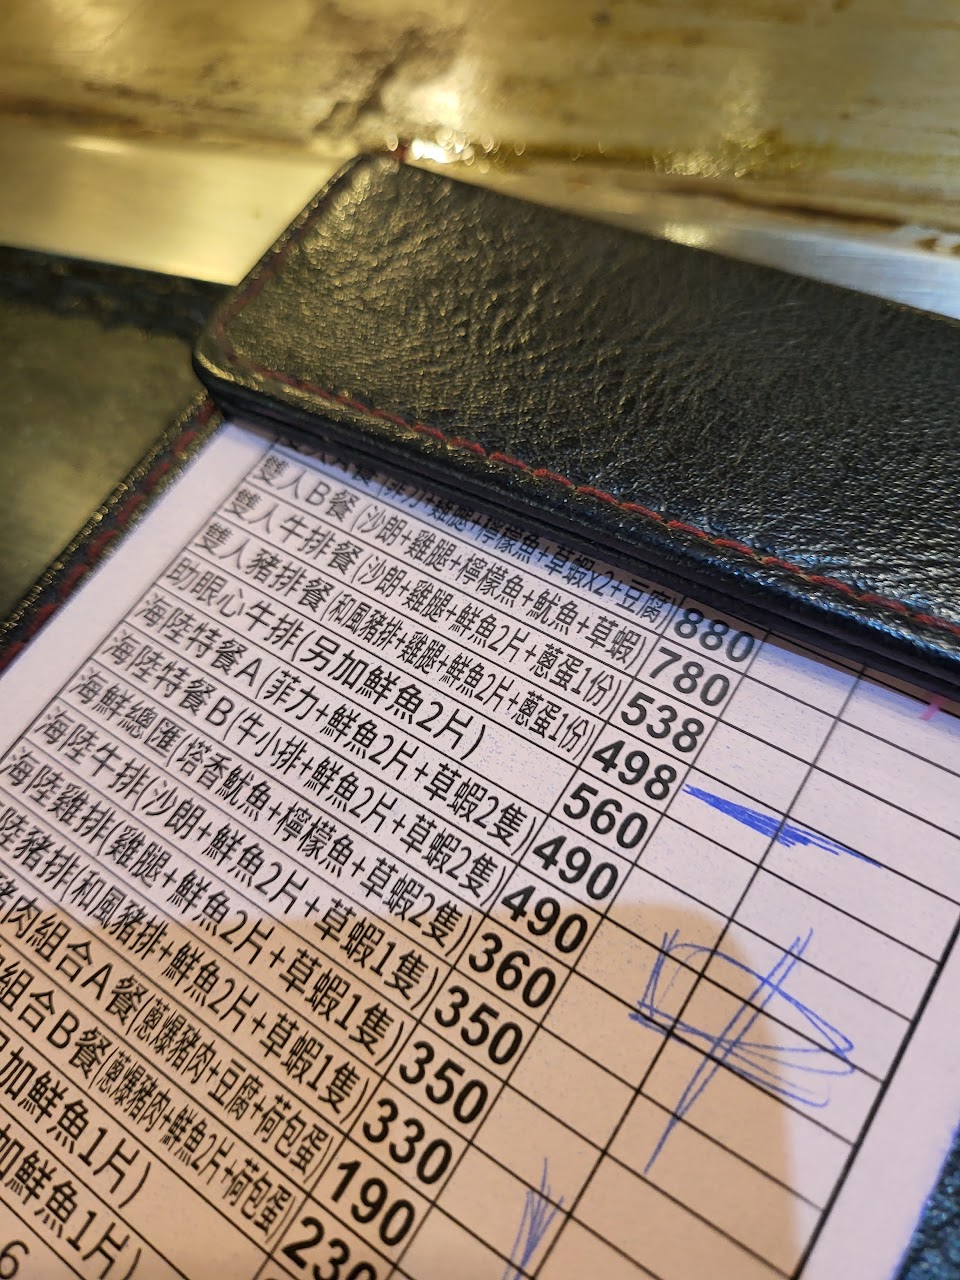 A餐(菲力+雞腿+檸檬魚+草蝦x2+豆腐) 880
雙人B餐(沙朗+雞腿+檸檬魚+魷魚+草蝦) 780
雙人牛排餐(沙朗+雞腿+鮮魚2片+蔥蛋1份) 538
雙人豬排餐(和風豬排+雞腿+鮮魚2片+蔥蛋1份) 498
助眠心牛排(另加鮮魚2片) 560
海陸特餐A(菲力+鮮魚2片+草蝦2隻) 490
海陸特餐B(牛小排+鮮魚2片+草蝦2隻) 490
海鮮總匯(塔香魷魚+檸檬魚+草蝦2隻) 360
海陸牛排(沙朗+鮮魚2片+草蝦1隻) 350
海陸雞排(雞腿+鮮魚2片+草蝦1隻) 350
陸豬排(和風豬排+鮮魚2片+草蝦1隻) 330
肉組合A餐(蔥爆豬肉+豆腐+荷包蛋) 190
組合B餐(蔥爆豬肉+鮮魚2片+荷包蛋) 230
加鮮魚1片)
加鮮魚1片)
6